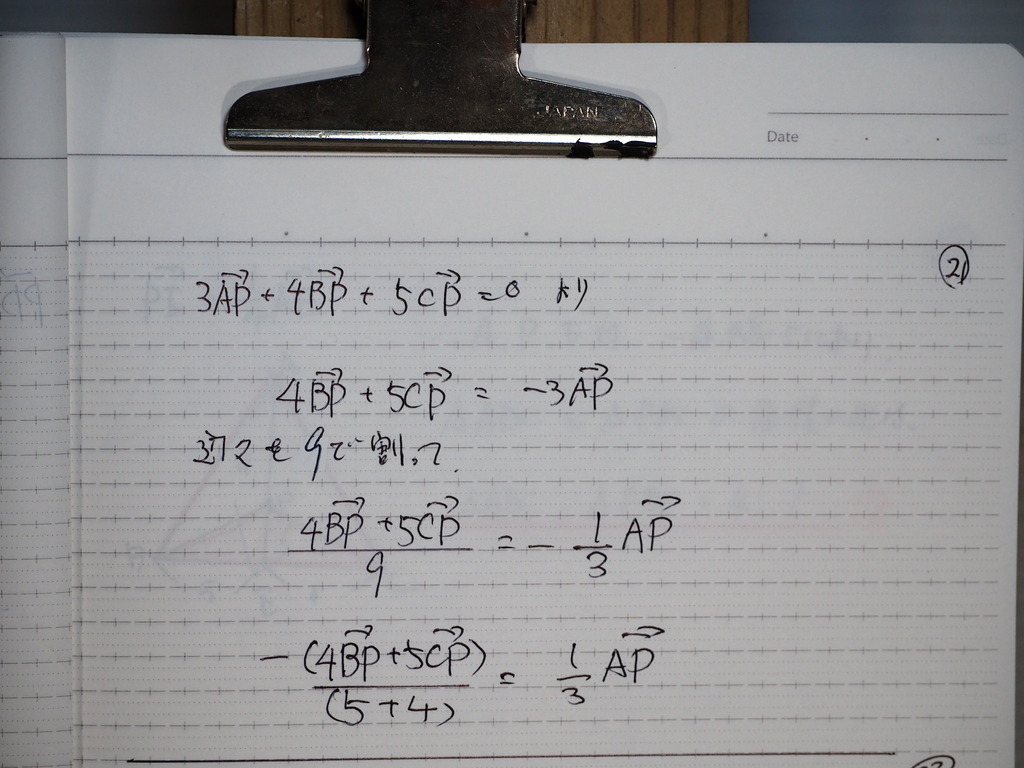 JAPAN
Date
㉑
3AP + 4BP + 5CP = 0 より
4BP + 5CP = -3AP
辺々を9で割って
4BP + 5CP / 9 = - 1/3 AP
-(4BP + 5CP) / (5 + 4) = 1/3 AP